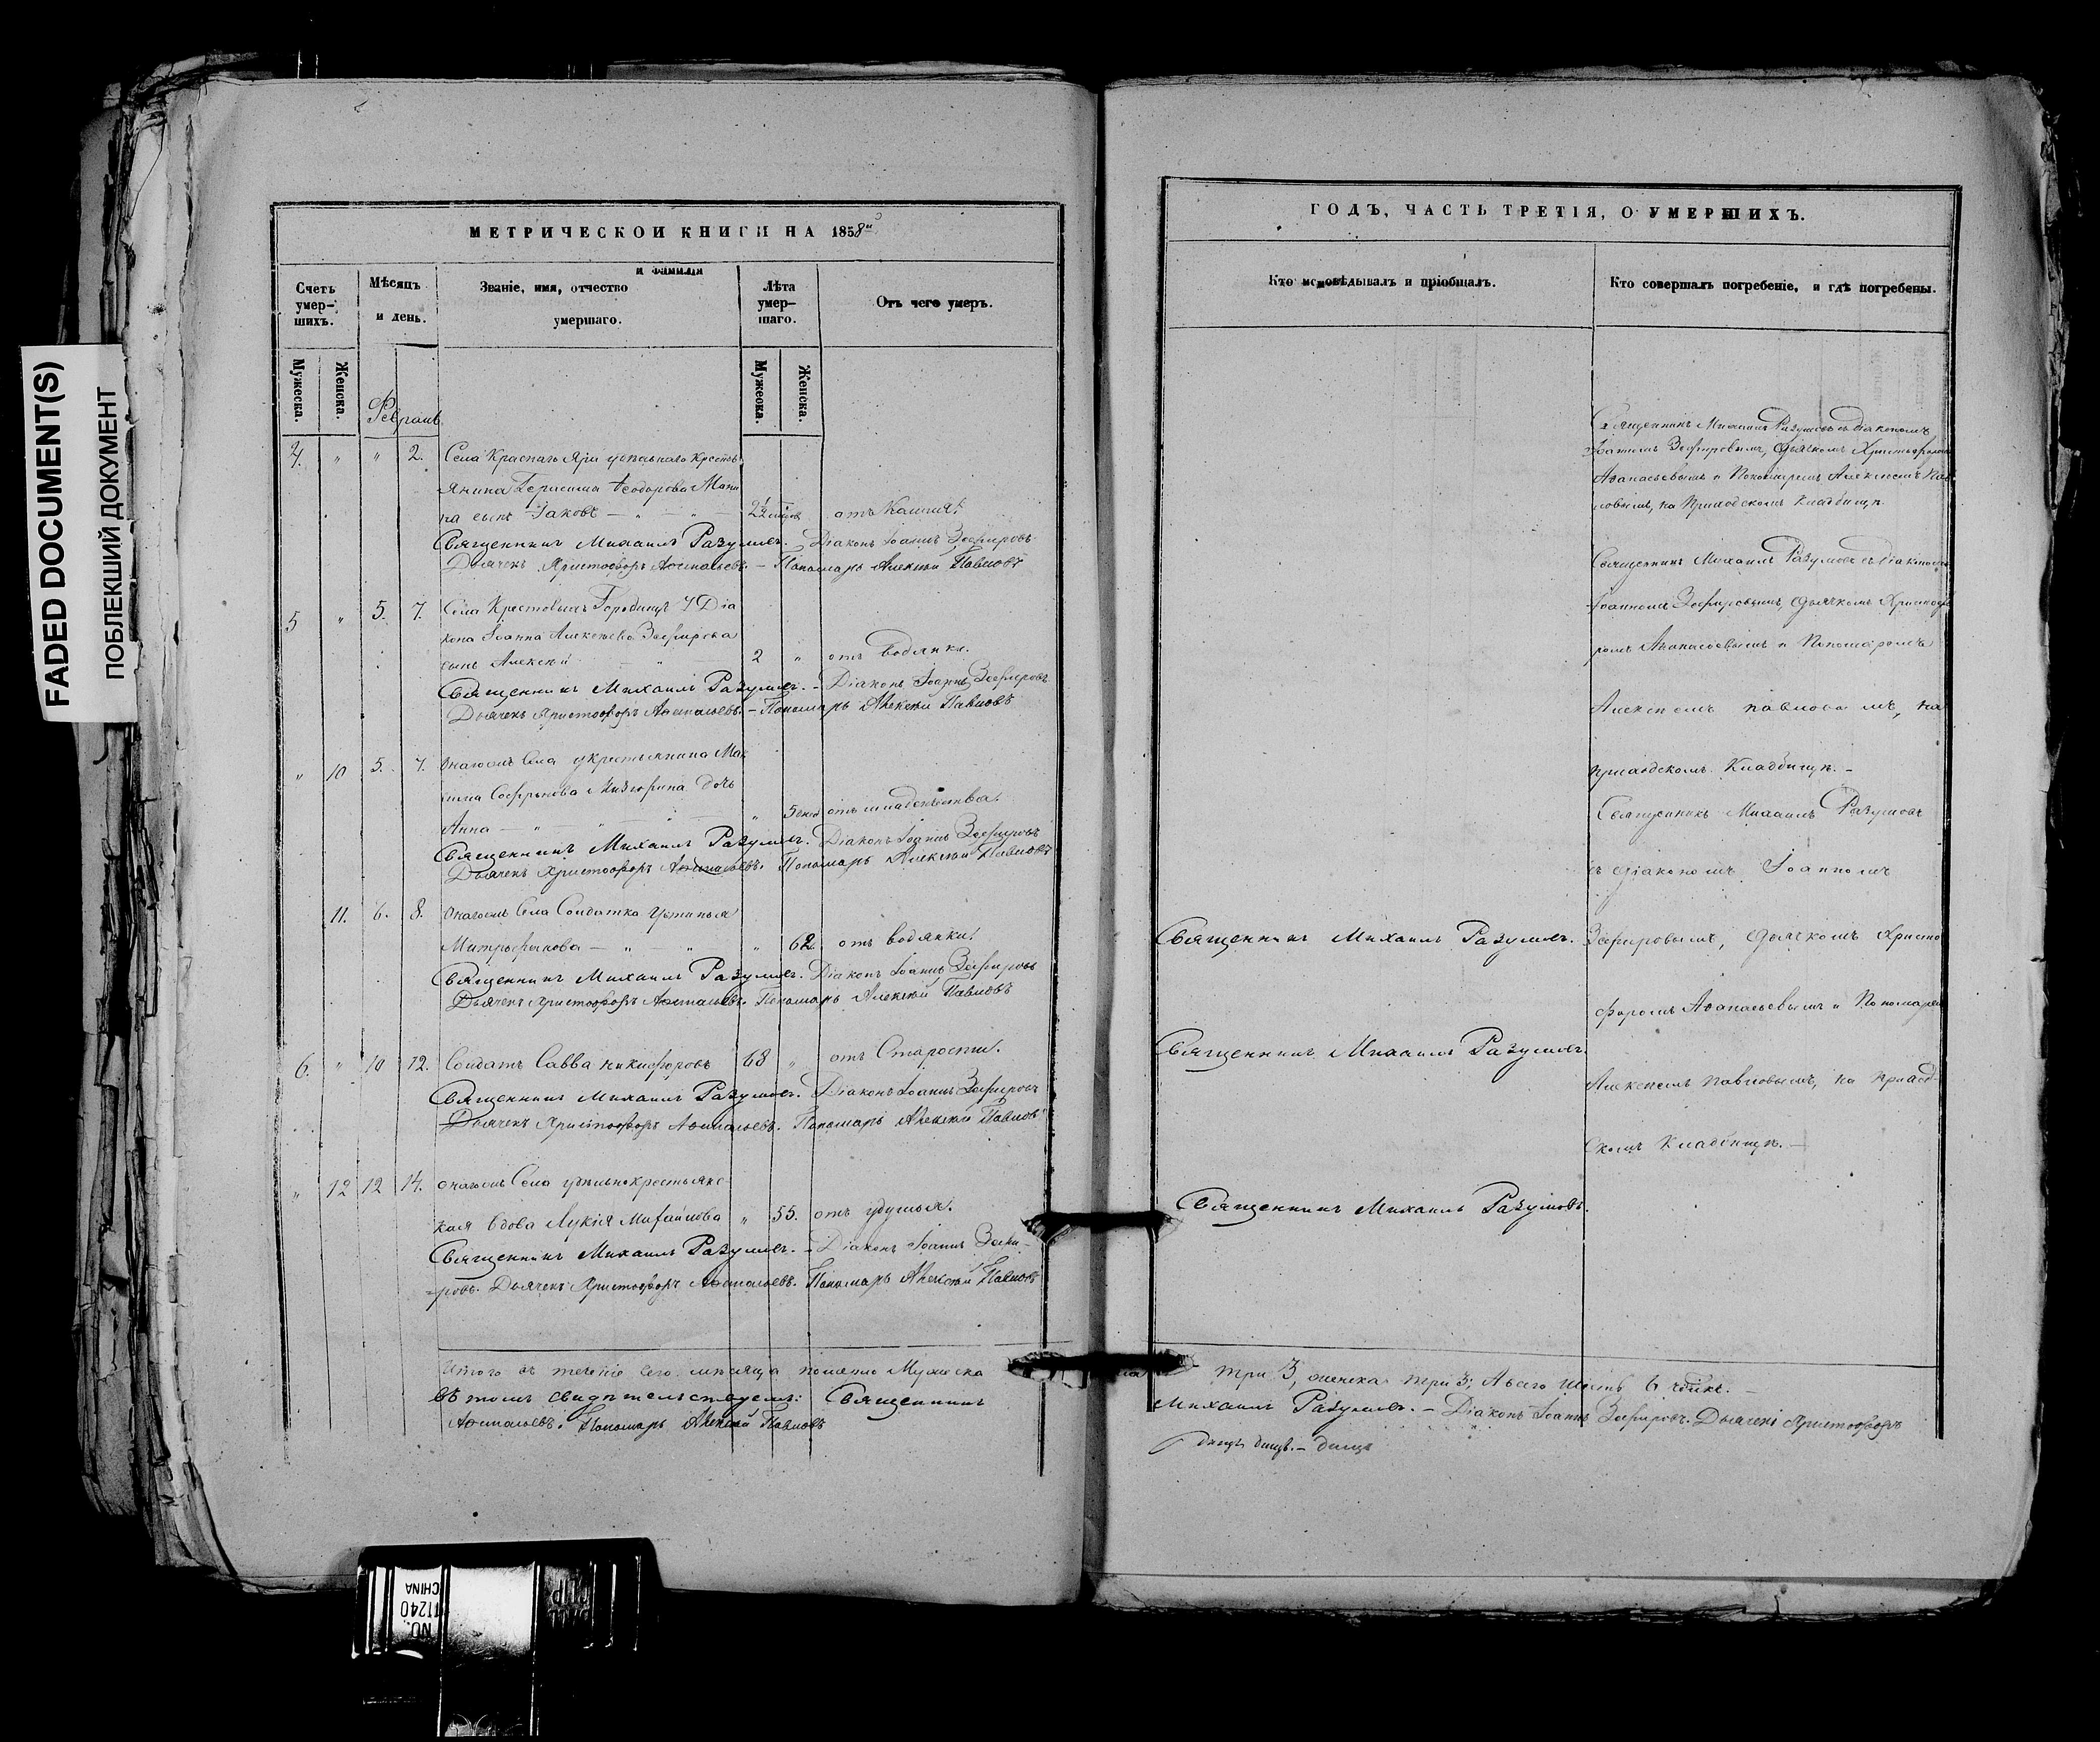 FADED DOCUMENT(S)
ПОБЛЕКШИЙ ДОКУМЕНТ
МЕТРИЧЕСКОЙ КНИГИ НА 1858й
Счетъ умер-шихъ.
Мужеска.
Женска.
Мѣсяцъ и день.
Званіе, имя, отчество и фамилія умершаго.
Лѣта умер-шаго.
Мужеска.
Женска.
Отъ чего умеръ.
Февраль
4. " " 2. Села Краснаго Яра удѣльнаго Кресть
янина Герасима Ѳеодорова
на сынъ Іаковъ — " — " — 2½ отъ Кашля.
Священникъ Михаилъ Разумовъ. Діаконъ Іоаннъ Зефировъ
Дьячекъ Христофоръ Аѳанасьевъ. — Пономарь Алексѣй Павловъ
5 " 5. 7. Села Крестовыхъ Городищъ у Діа
кона Іоанна Алексѣева Зефирова
сынъ Алексѣй — " — 2 " отъ водянки.
Священникъ Михаилъ Разумовъ. – Діаконъ Іоаннъ Зефировъ
Дьячекъ Христофоръ Аѳанасьевъ. – Пономарь Алексѣй Павловъ
" 10 5. 7. Онагожъ Села у крестьянина Мак
сима Софронова дочь
Анна — " — " — " 5 отъ младенчества.
Священникъ Михаилъ Разумовъ. Діаконъ Іоаннъ Зефировъ
Дьячекъ Христофоръ Аѳанасьевъ. Пономарь Алексѣй Павловъ
11. 6. 8. Онагожъ Села Солдатка Устинья
Митрофанова — " — " — " 62. отъ водянки.
Священникъ Михаилъ Разумовъ. Діаконъ Іоаннъ Зефировъ
Дьячекъ Христофоръ Аѳанасьевъ. Пономарь Алексѣй Павловъ
6. " 10 12. Солдатъ Савва Никифоровъ 68 " отъ Старости.
Священникъ Михаилъ Разумовъ. Діаконъ Іоаннъ Зефировъ
Дьячекъ Христофоръ Аѳанасьевъ. Пономарь Алексѣй Павловъ
" 12 12 14. онагожъ Села удѣльнокрестьянс
кая вдова Лукія Михайлова " 55. отъ удушья.
Священникъ Михаилъ Разумовъ. – Діаконъ Іоаннъ Зефи-
ровъ. Дьячекъ Христофоръ Аѳанасьевъ. Пономарь Алексѣй Павловъ
Итого въ теченіе сего мѣсяца померло Мужеска
въ томъ свидѣтельствуемъ: Священникъ
Аѳанасьевъ. Пономарь Алексѣй Павловъ
ГОДЪ, ЧАСТЬ ТРЕТІЯ, О УМЕРШИХЪ.
Кто исповѣдывалъ и пріобщалъ.
Кто совершалъ погребеніе, и гдѣ погребены.
Священникъ Михаилъ Разумовъ съ діакономъ
Іоанномъ Зефировымъ, дьячкомъ Христофоромъ
Аѳанасьевымъ и Пономаремъ Алексѣемъ Пав
ловымъ, на Приходскомъ Кладбищѣ.
Священникъ Михаилъ Разумовъ съ діакономъ
Іоанномъ Зефировымъ, дьячкомъ Христофо
ромъ Аѳанасьевымъ и Пономаремъ
Алексѣемъ Павловымъ, на
приходскомъ Кладбищѣ. –
Священникъ Михаилъ Разумовъ
съ діакономъ Іоанномъ
Священникъ Михаилъ Разумовъ. Зефировымъ, дьячкомъ Христо
форомъ Аѳанасьевымъ и Пономарем
Священникъ Михаилъ Разумовъ.
Алексѣемъ Павловымъ, на приход-
скомъ Кладбищѣ. —
Священникъ Михаилъ Разумовъ.
три 3, женска три 3; А всего шесть 6
Михаилъ Разумовъ. – Діаконъ Іоаннъ Зефировъ. Дьячекъ Христофоръ
NO. 11240
CHINA